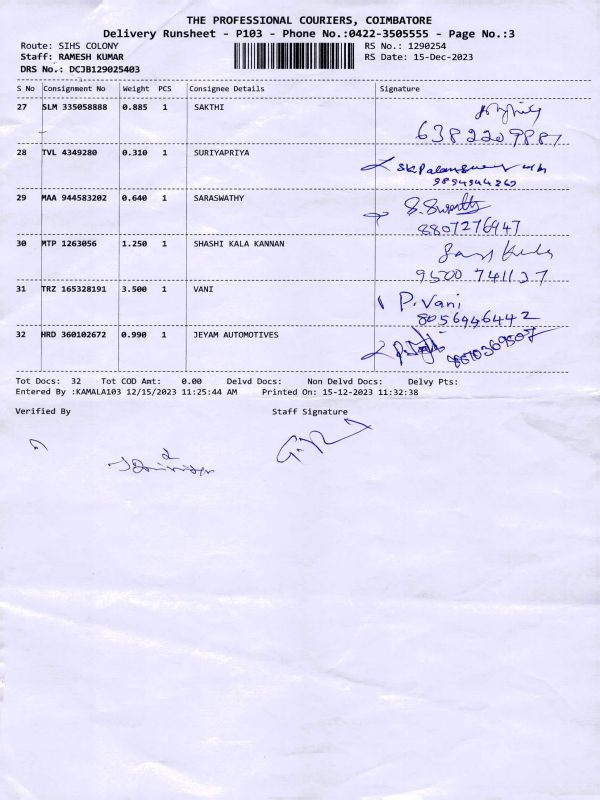 THE PROFESSIONAL COURIERS, COIMBATORE
Delivery Runsheet - P103 - Phone No.:0422-3505555 - Page No.:3
Route: SIHS COLONY RS No.: 1290254
Staff: RAMESH KUMAR RS Date: 15-Dec-2023
DRS No.: DCJB129025403
S No Consignment No Weight PCS Consignee Details Signature
27 SLM 335058888 0.885 1 SAKTHI
6382209887
28 TVL 4349280 0.310 1 SURIYAPRIYA
9894944262
29 MAA 944583202 0.640 1 SARASWATHY
8807276947
30 MTP 1263056 1.250 1 SHASHI KALA KANNAN
9500741137
31 TRZ 165328191 3.500 1 VANI P. Vani
8056446442
32 HRD 360102672 0.990 1 JEYAM AUTOMOTIVES
Tot Docs: 32 Tot COD Amt: 0.00 Delvd Docs: Non Delvd Docs: Delvy Pts:
Entered By :KAMALA103 12/15/2023 11:25:44 AM Printed On: 15-12-2023 11:32:38
Verified By Staff Signature